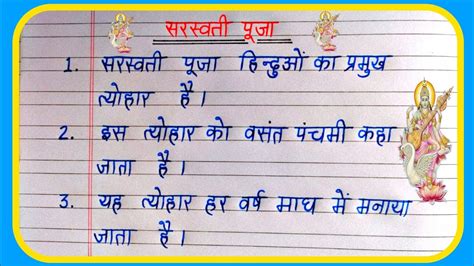 सरस्वती पूजा
1. सरस्वती पूजा हिन्दुओं का प्रमुख
त्योहार है ।
2. इस त्योहार को वसंत पंचमी कहा
जाता है ।
3. यह त्योहार हर वर्ष माघ में मनाया
जाता है ।